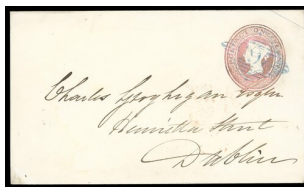 Charles Geoghegan Esqre
Henrietta Street
Dublin